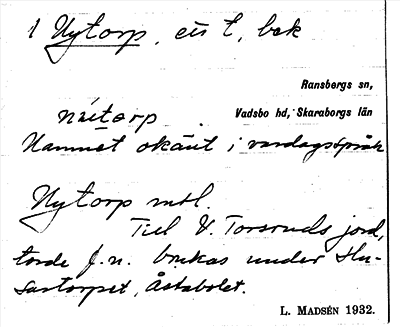 1 Nytorp, eis t, bek
Ransbergs sn,
Vadsbo hd, Skaraborgs län
nŷtorp
Namnet okänt i vardagsspråk
Nytorp msl.
Till V. Torsruds jord,
torde f.n. brukas under Hu-
sartorpet, Åstabolet.
L. MADSÉN 1932.